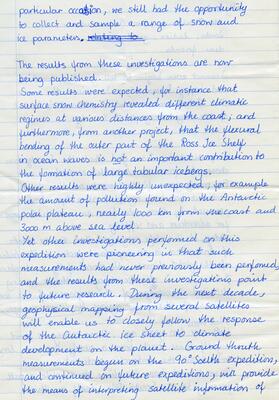 particular occasion, we still had the opportunity
to collect and sample a range of snow and
ice parameters. relating to
The results from these investigations are now
being published.
Some results were expected, for instance that
surface snow chemistry revealed different climatic
regimes at various distances from the coast; and
furthermore, from another project, that the flexural
bending of the outer part of the Ross Ice Shelf
in ocean waves is not an important contribution to
the formation of large tabular icebergs.
Other results were highly unexpected, for example
the amount of pollution found on the Antarctic
polar plateau, nearly 1000 km from the coast and
3000 m above sea level.
Yet other investigations performed on this
expedition were pioneering in that such
measurements had never previously been performed,
and the results from these investigating point
to future research. During the next decade,
geophysical mapping from several satellites
will enable us to closely follow the response
of the Antarctic Ice Sheet to climate
development on the planet. Ground thruth
measurements begun on the 90° South expedition,
and continued on future expeditions, will provide
the means of interpreting satellite information of